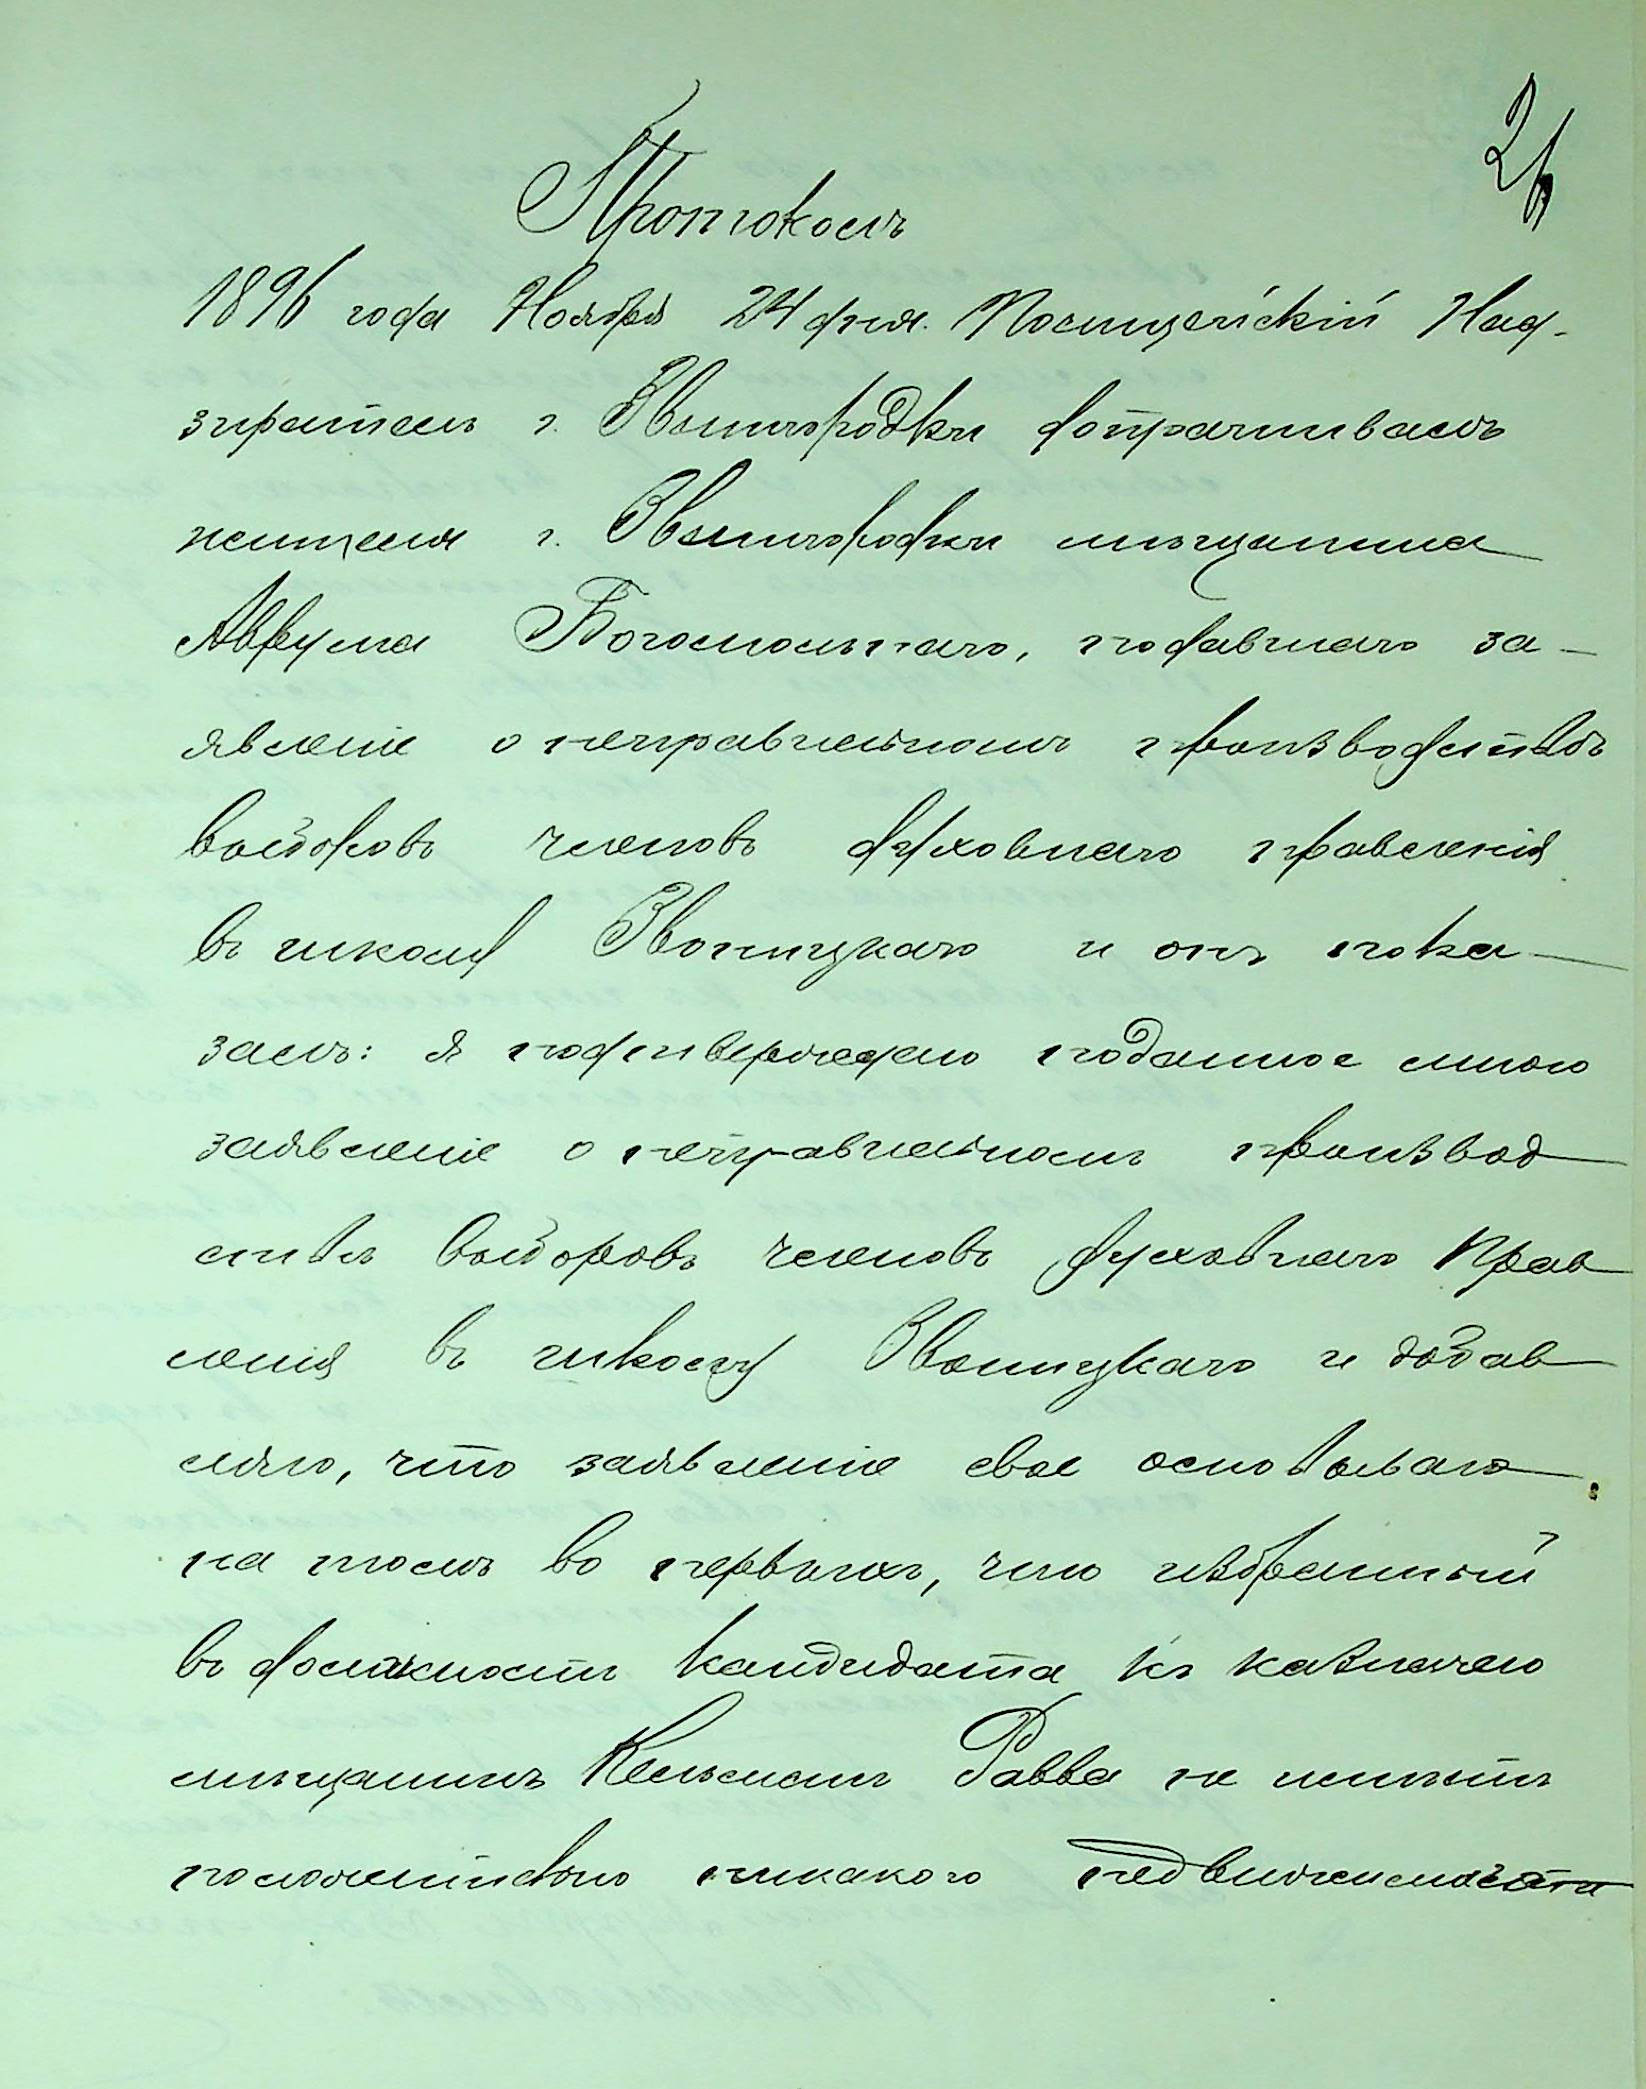 26
Протоколъ
1896 года Ноября 24 дня. Полицейскій Над-
зиратель г. Звенигородки допрашивалъ
жителя г. Звенигородки мѣщанина
Аврума Богомольнаго, подавшаго за-
явленіе о неправильномъ производствѣ
выборовъ членовъ духовнаго правленія
въ школу Звоницкаго и онъ пока-
залъ: я подтверждаю поданное мною
заявленіе о неправильномъ производ
ствѣ выборовъ членовъ духовнаго прав
ленія въ школу Звоницкаго и добав
ляю, что заявленіе свое основываю
на томъ во первыхъ, что избранный
въ должность кандидата къ казначею
мѣщанинъ Кельманъ Равва не имѣетъ
положительно никакого недвижимаго